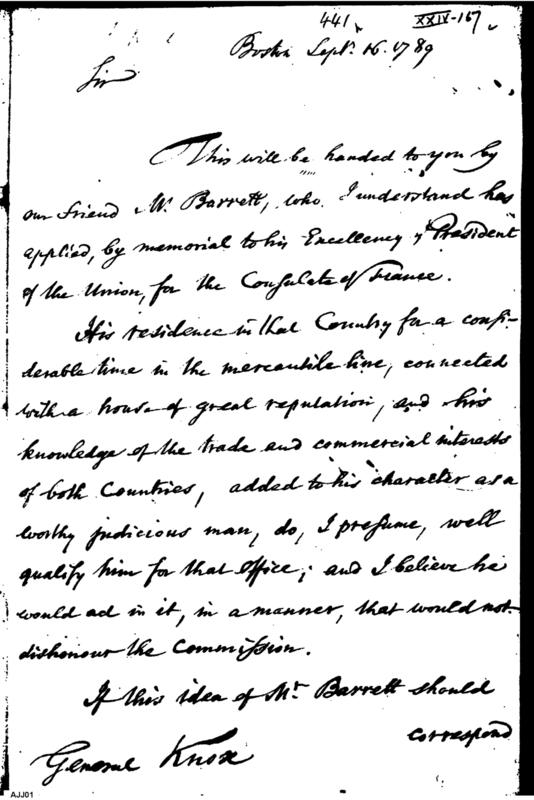 441 XXIV-167
Boston Sept. 16. 1789
Sir
This will be handed to you by
our friend Mr. Barrett, who I understand has
applied, by memorial to his Excellency ye President
of the Union, for the Consulate of France.
His residence in that Country for a consi-
derable time in the mercantile line, connected
with a house of great reputation, and his
knowledge of the trade and commercial interests
of both Countries, added to his character as a
worthy judicious man, do, I presume, well
qualify him for that office; and I believe he
would act in it, in a manner, that would not
dishonour the Commission.
If this idea of Mr. Barrett should
correspond
General Knox
AJJ01